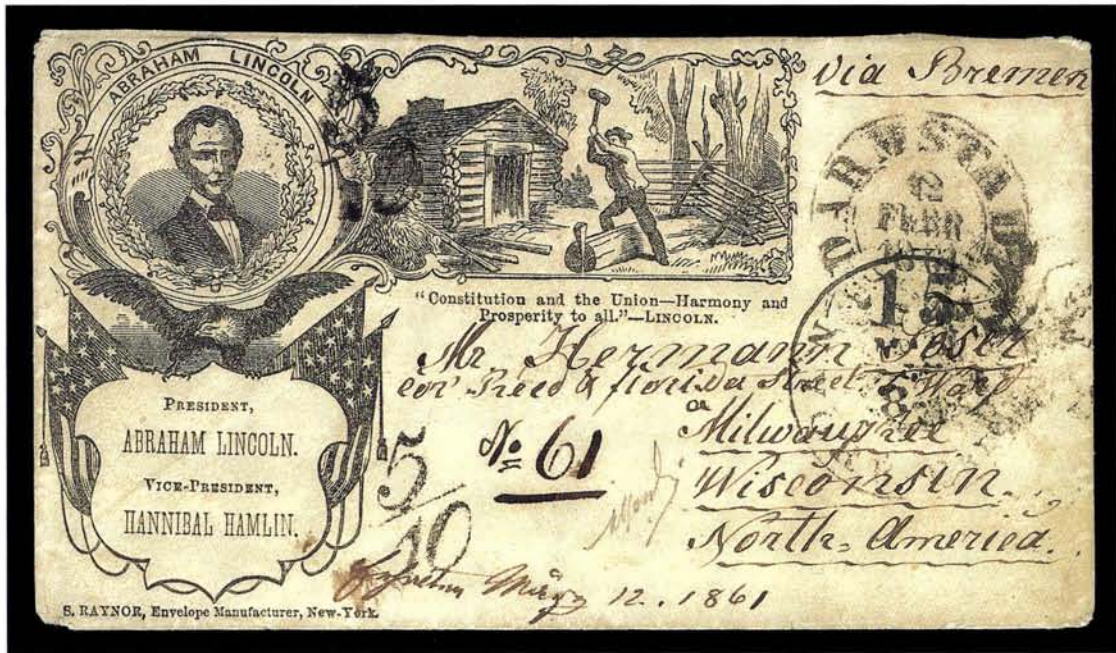 ABRAHAM LINCOLN
via Bremen
DARMSTADT
2
FEBR
"Constitution and the Union—Harmony and
Prosperity to all."—LINCOLN.
15
Mr Hermann
cor Reed & florida Street 5 Ward
8
Milwaugree
Wisconsin
North-America.
No 61
5
10
März 12. 1861
PRESIDENT,
ABRAHAM LINCOLN.
VICE-PRESIDENT,
HANNIBAL HAMLIN.
S. RAYNOR, Envelope Manufacturer, New-York.